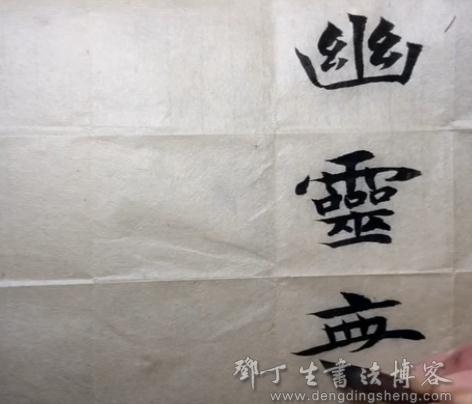 幽靈無
鄧丁生書法博客
www.dengdingsheng.com